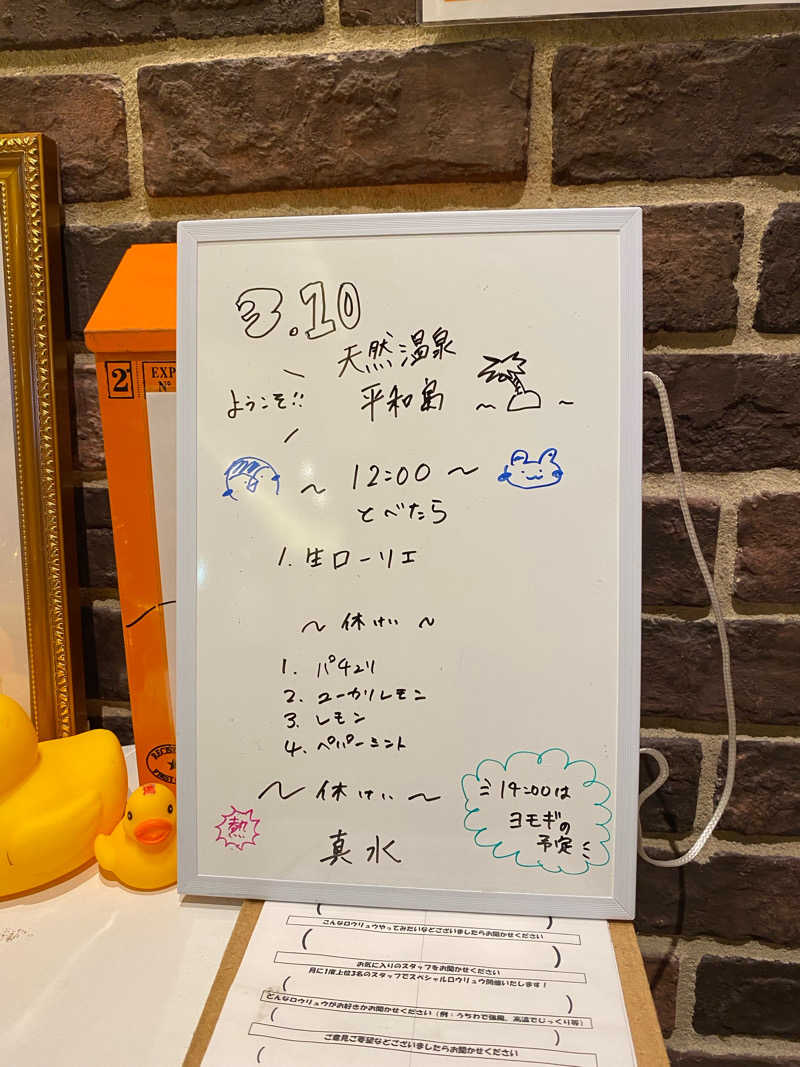 3.10
天然温泉
ようこそ!! 平和島
～ 12:00 ～
とべたら
1. 生ローリエ
～ 休けい ～
1. パチュリ
2. ユーカリレモン
3. レモン
4. ペパーミント
～ 休けい ～
熱
真水
14:00は
ヨモギの
予定
2
EXP
Nº
こんなロウリュウやってみたいなどございましたらお聞かせください
お気に入りのスタッフをお聞かせください
月に1度上位3名のスタッフでスペシャルロウリュウ開催いたします！
どんなロウリュウがお好きかお聞かせください（例：うちわで強風、高温でじっくり等）
ご意見ご要望などございましたらお聞かせください